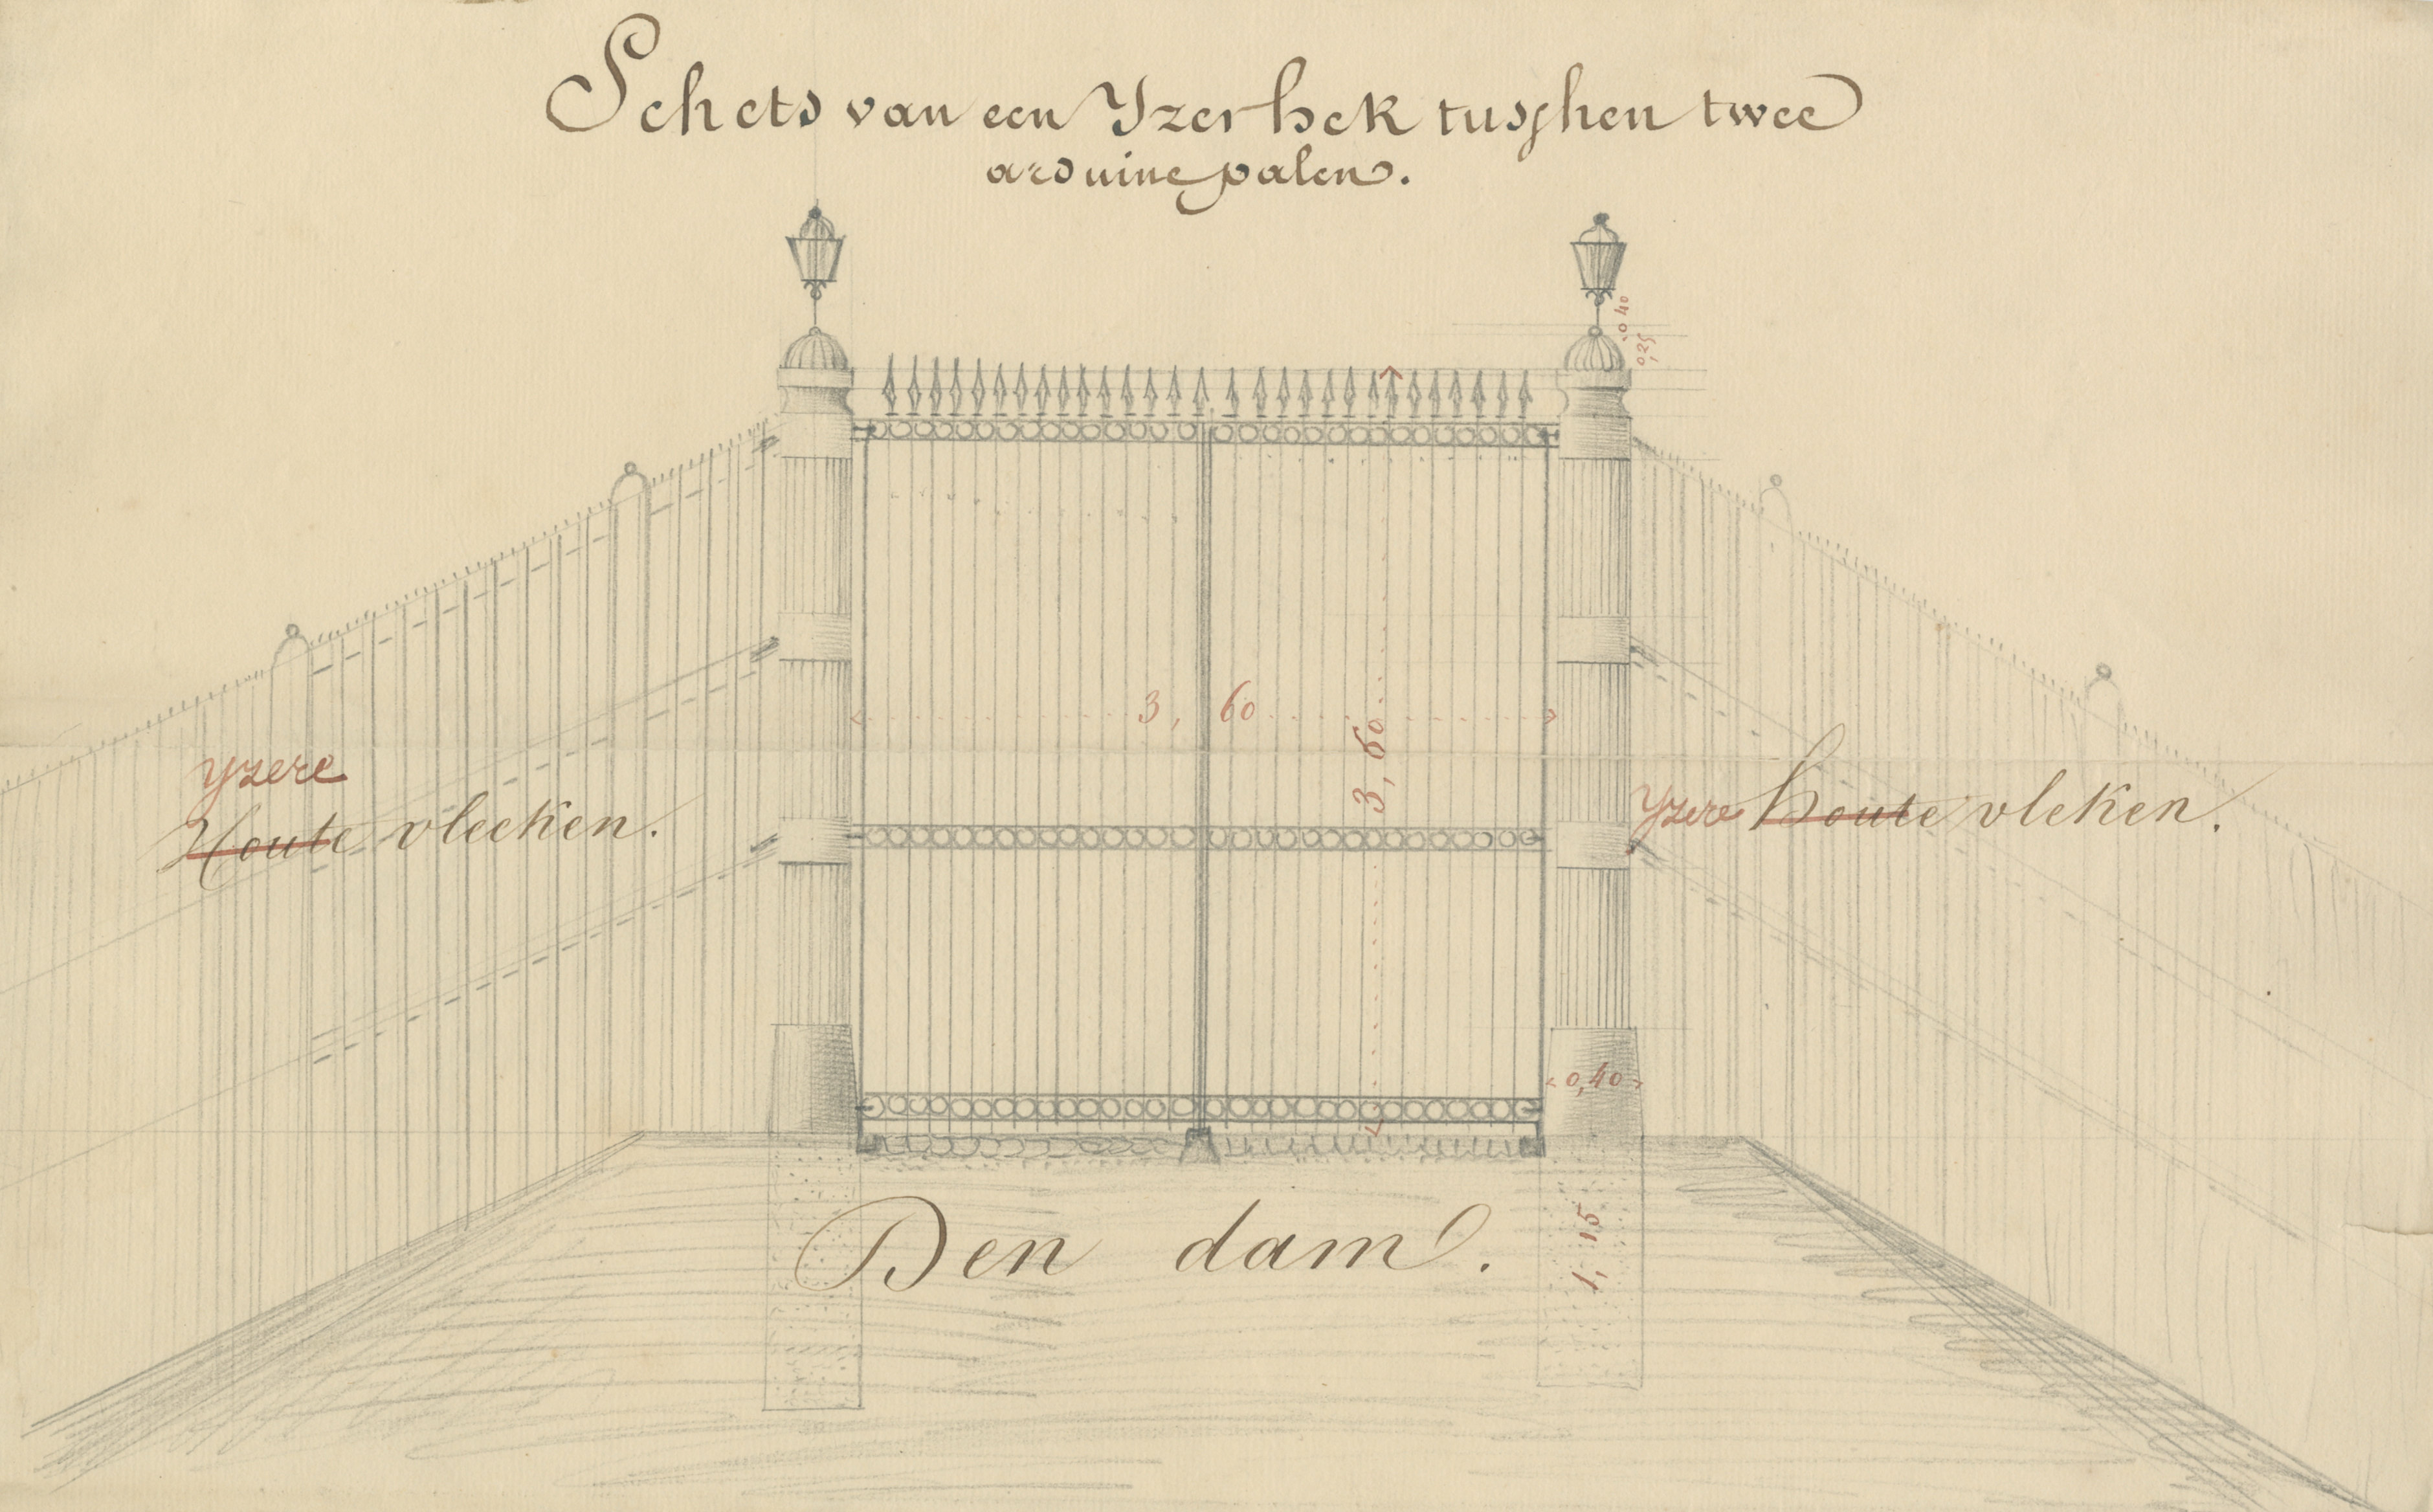 Schets van een Yzer hek tusschen twee
arduine palen.
0,40
0,25
3,60
3,60
yzere
Houte vlecken.
yzere houte vleken.
0,40
Den dam.
1,15